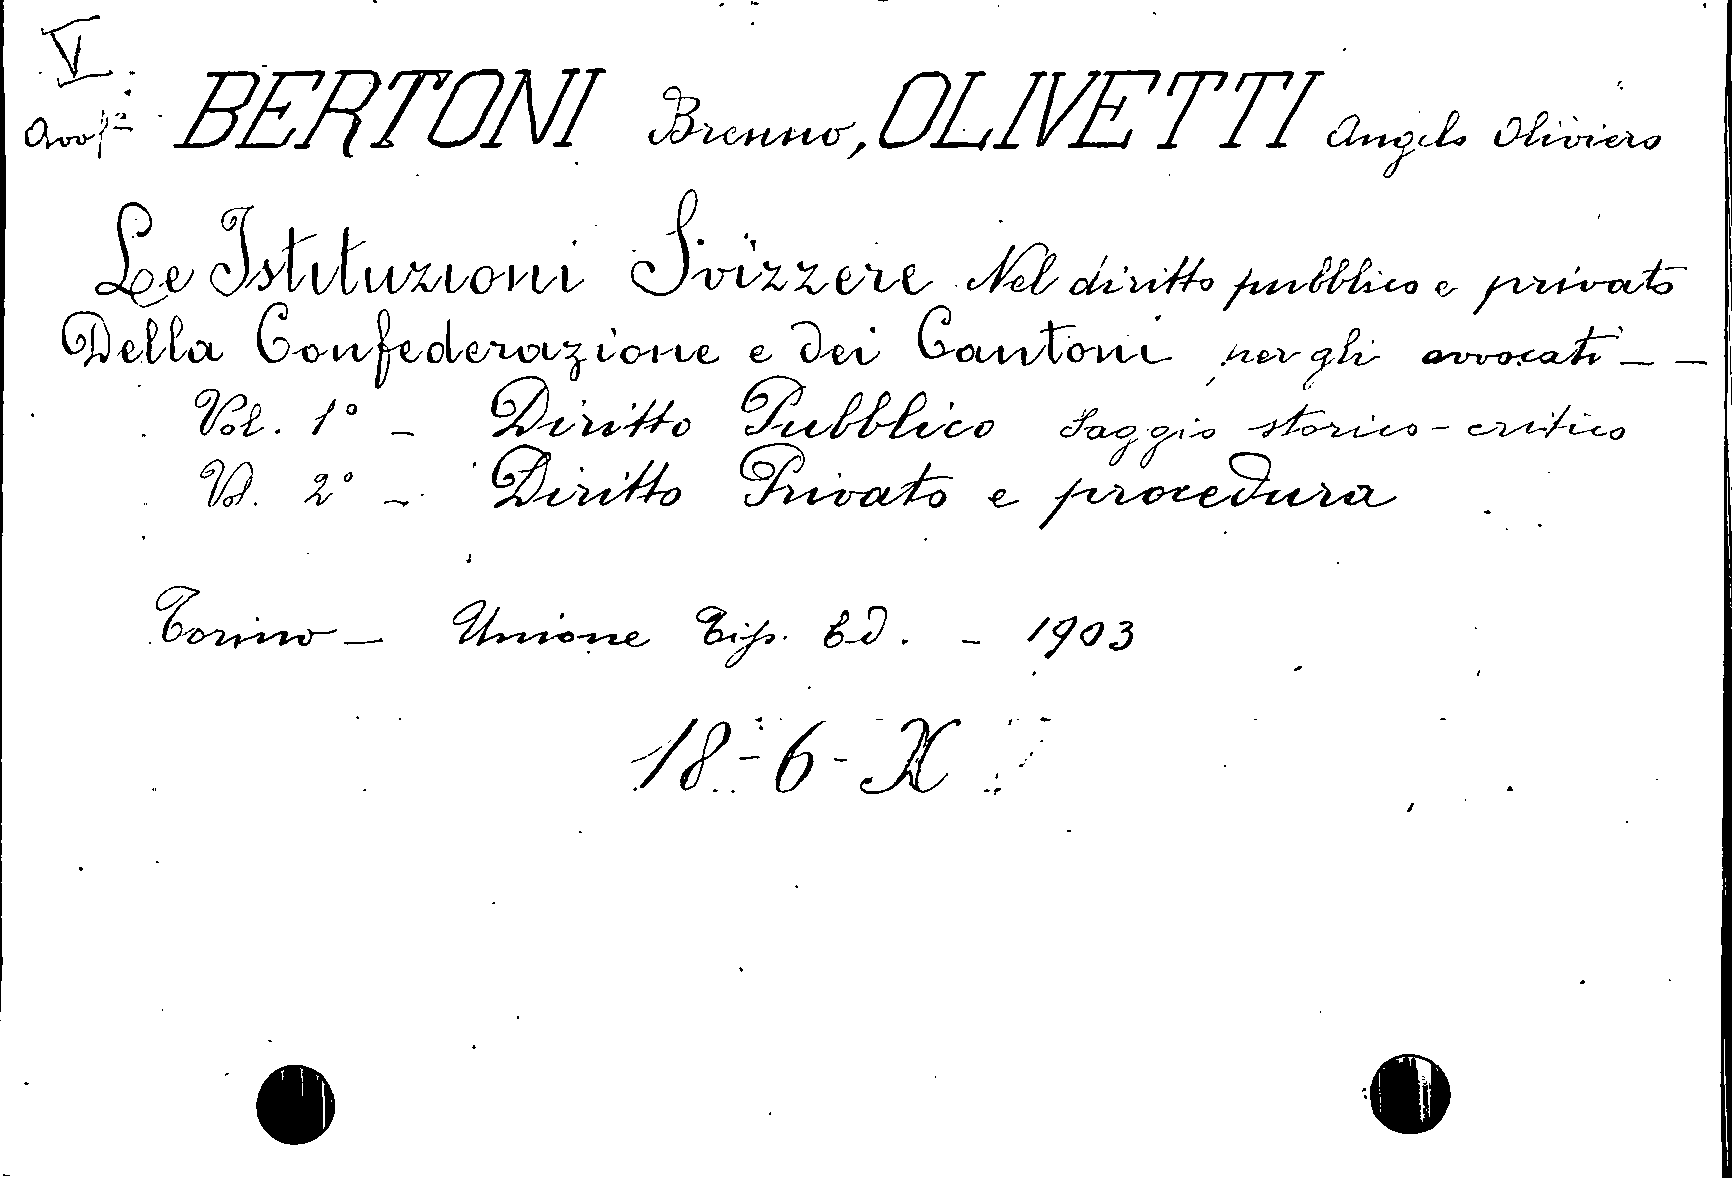 V
BERTONI Brenno, OLIVETTI Angelo Oliviero
Le Istituzioni Svizzere Nel diritto pubblico e privato
Della Confederazione e dei Cantoni per gli avvocati - -
Vol. 1° - Diritto Pubblico Saggio storico-critico
Vol. 2° - Diritto Privato e procedura
Torino - Unione Tip. Ed. - 1903
18-6-X